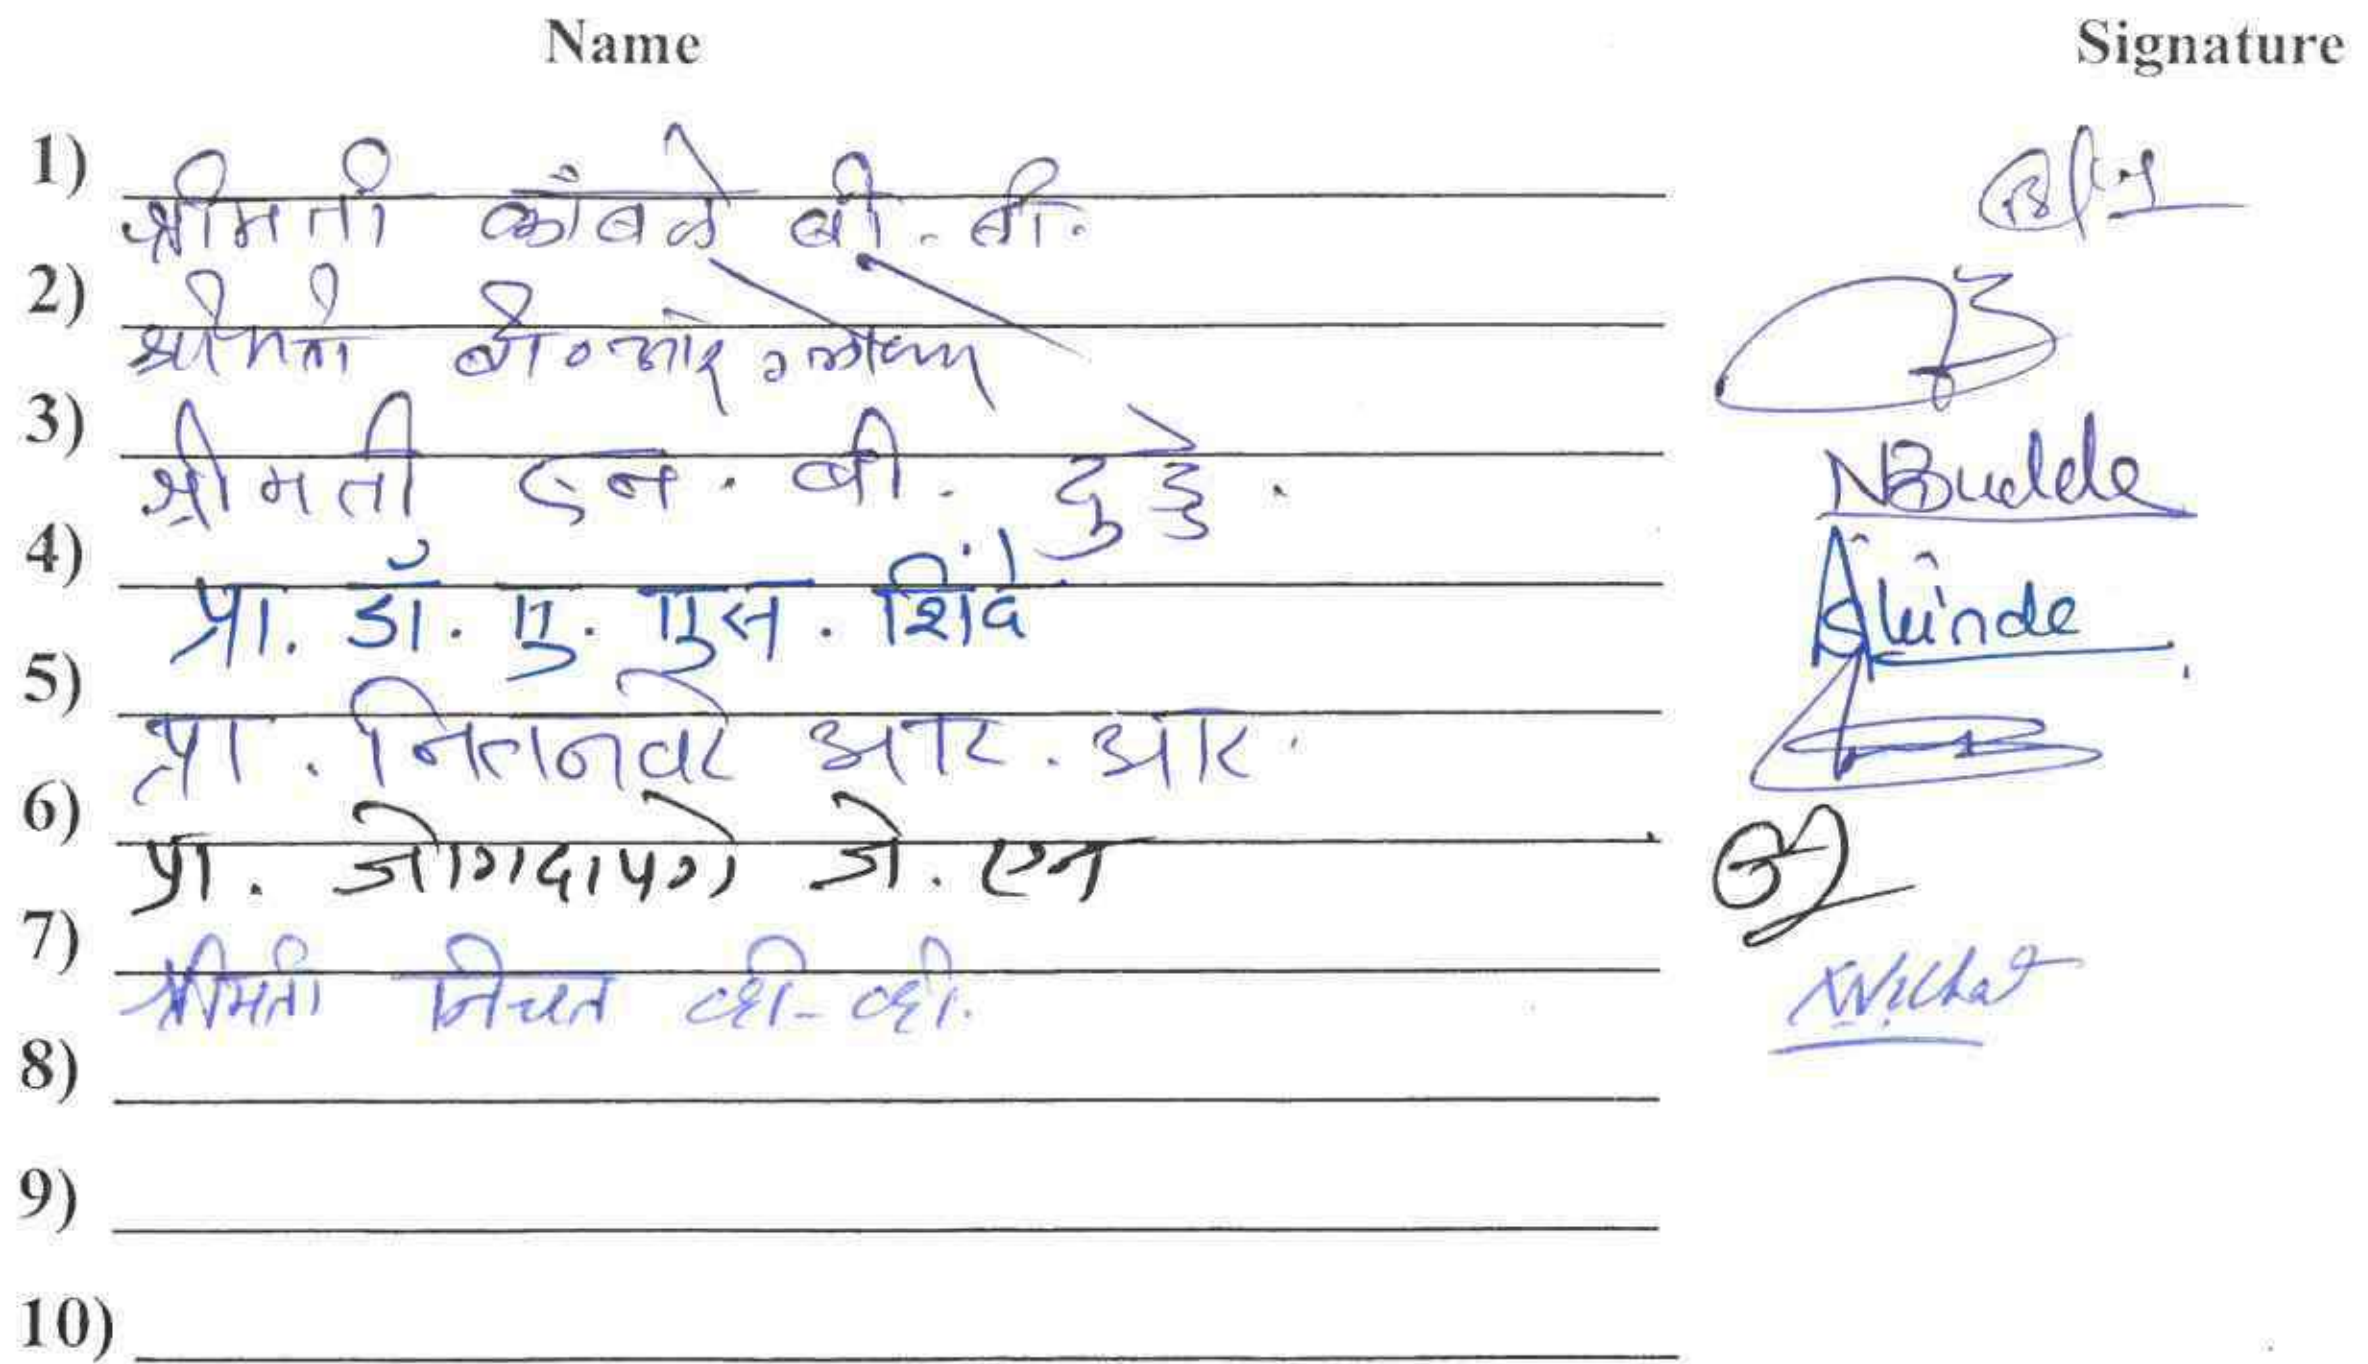 Name Signature
1) श्रीमती कांबळे बी. बी.
2) श्रीमती बी० आर०
3) श्रीमती एन. बी. दुड्डे. NBudde
4) प्रा. डॉ. ए. एस. शिंदे Shinde
5) प्रा. नितनवरे आर. आर.
6) प्रा. जोगदापगे जे. एन
7) श्रीमती निचत व्ही. व्ही. Nichat
8)
9)
10)